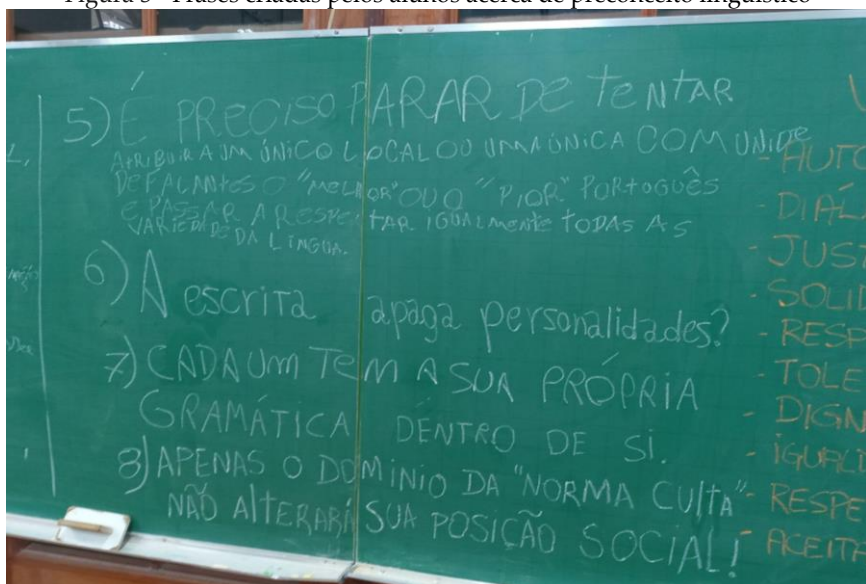 Figura 5 - Frases criadas pelos alunos acerca de preconceito linguístico
5) É PRECISO PARAR DE TENTAR
ATRIBUIR A UM ÚNICO LOCAL OU UMA ÚNICA COMUNIDE
DE FALANTES O "MELHOR" OU O "PIOR" PORTOGUÊS
E PASSAR A RESPEITAR IGUALMENTE TODAS AS
VARIEDADE DA LÍNGUA.
6) A escrita apaga personalidades?
7) CADA UM TEM A SUA PRÓPRIA
GRAMÁTICA DENTRO DE SI.
8) APENAS O DOMÍNIO DA "NORMA CULTA"
NÃO AlTERARÁ SUA POSIÇÃO SOCIAL!
- AUTO
- DIÁL
- JUST
- SOLI
- RESP
- TOLE
- DIGN
- iGUALD
- RESPE
- ACEITA